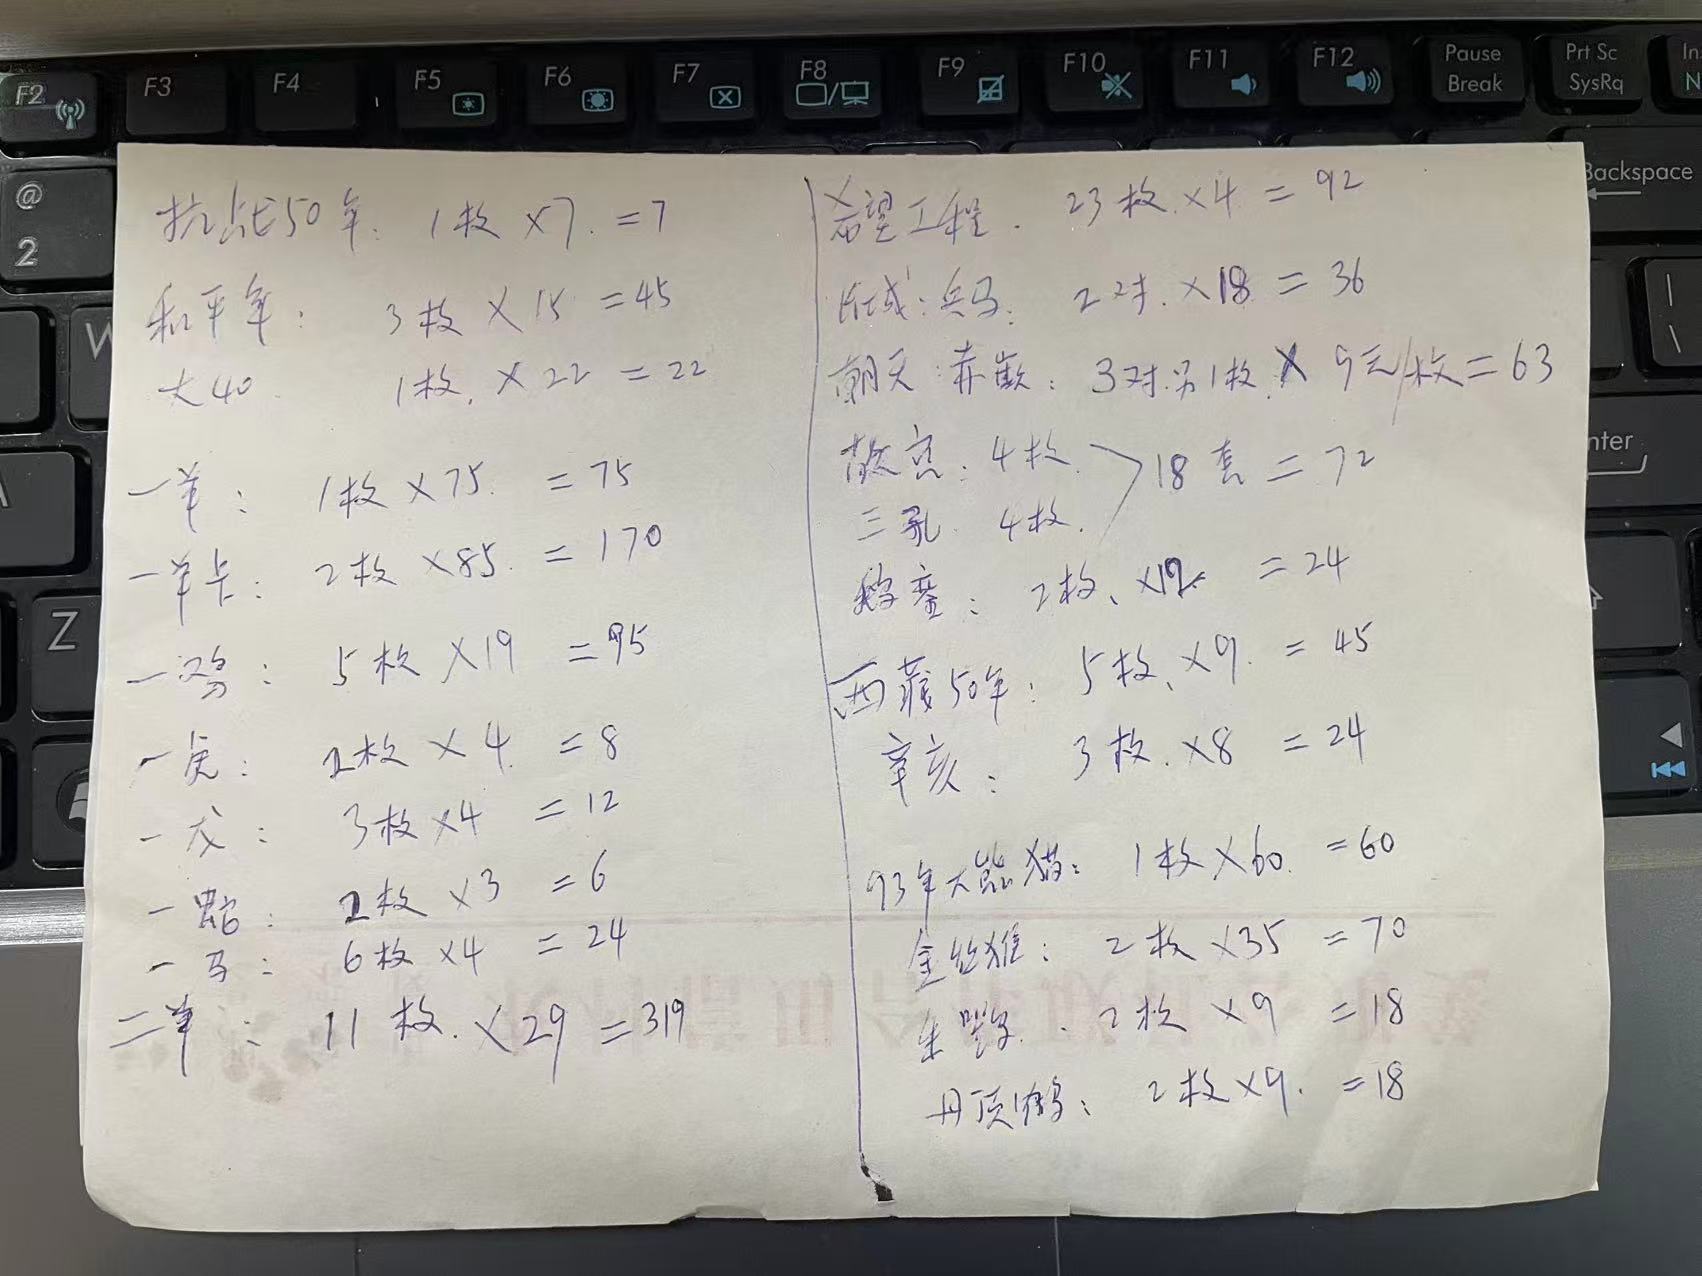 F2
F3
F4
F5
F6
F7
F8
F9
F10
F11
F12
Pause
Break
Prt Sc
SysRq
In
N
@
2
W
A
Z
Backspace
nter
抗战50年: 1枚×7.=7
和平年: 3枚×15=45
大40 1枚.×22=22
一羊: 1枚×75.=75
一羊卡: 2枚×85.=170
一鸡: 5枚×19=95
一虎: 2枚×4=8
一龙: 3枚×4=12
一蛇: 2枚×3=6
一马: 6枚×4=24
二羊: 11枚.×29=319
希望工程. 23枚.×4=92
长城:兵马. 2对.×18=36
朝天:赤嵌: 3对.另1枚×9元/枚=63
故宫: 4枚.
三孔. 4枚.
18套=72
鹅銮: 2枚、×12=24
西藏50年: 5枚、×9.=45
辛亥: 3枚.×8=24
93年大熊猫: 1枚×60.=60
金丝猴: 2枚×35=70
朱鹮. 2枚×9=18
丹顶鹤: 2枚×9.=18